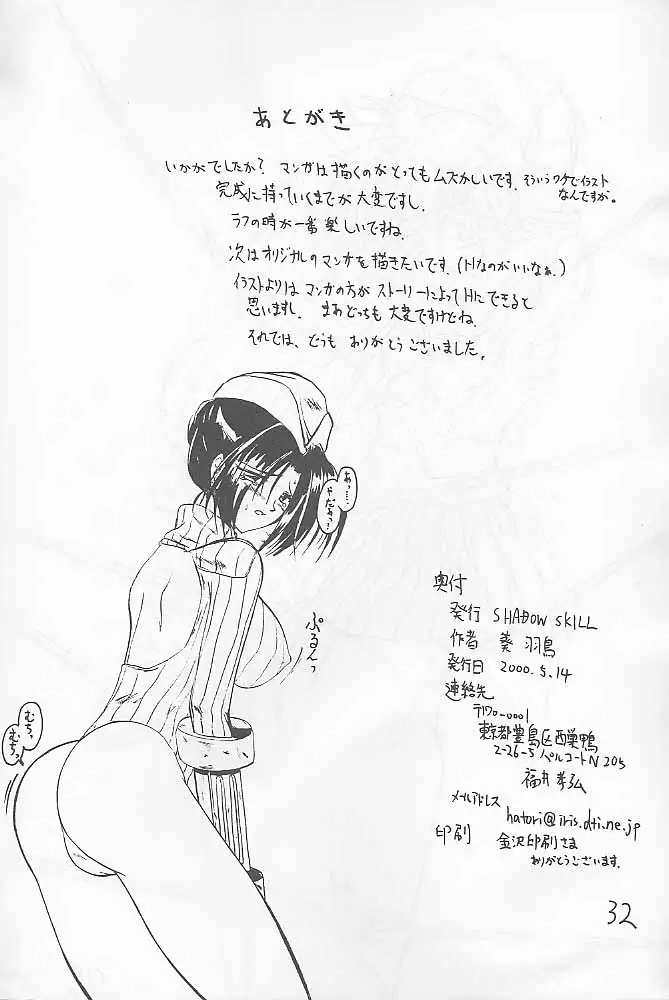 あとがき
いかがでしたか? マンガは描くのがとってもムズかしいです。そういうワケでイラスト
なんですが。
完成に持っていくまでが大変ですし.
ラフの時が一番楽しいですね.
次はオリジナルのマンガを描きたいです.(Hなのがいいなぁ.)
イラストよりはマンガの方がストーリーによってHにできると
思いますし. まあどっちも大変ですけどね.
それでは、どうもありがとうございました。
あっ……
やだぁっ!
ぷるんっ
むちっ
むちっ
奥付
発行 SHADOW SKILL
作者 葵 羽鳥
発行日 2000.5.14
連絡先
〒170-0001
東京都豊島区西巣鴨
2-26-5 パルコートN205
福井孝弘
メールアドレス
hatori@iris.dti.ne.jp
印刷 金沢印刷さま
ありがとうございます.
32